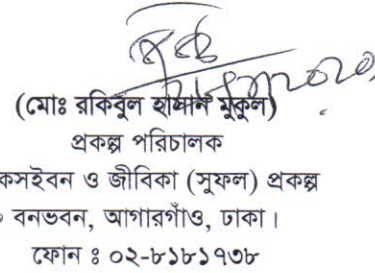 (মোঃ রকিবুল হাসান মুকুল)
প্রকল্প পরিচালক
কসইবন ও জীবিকা (সুফল) প্রকল্প
বনভবন, আগারগাঁও, ঢাকা।
ফোন ঃ ০২-৮১৮১৭৩৮